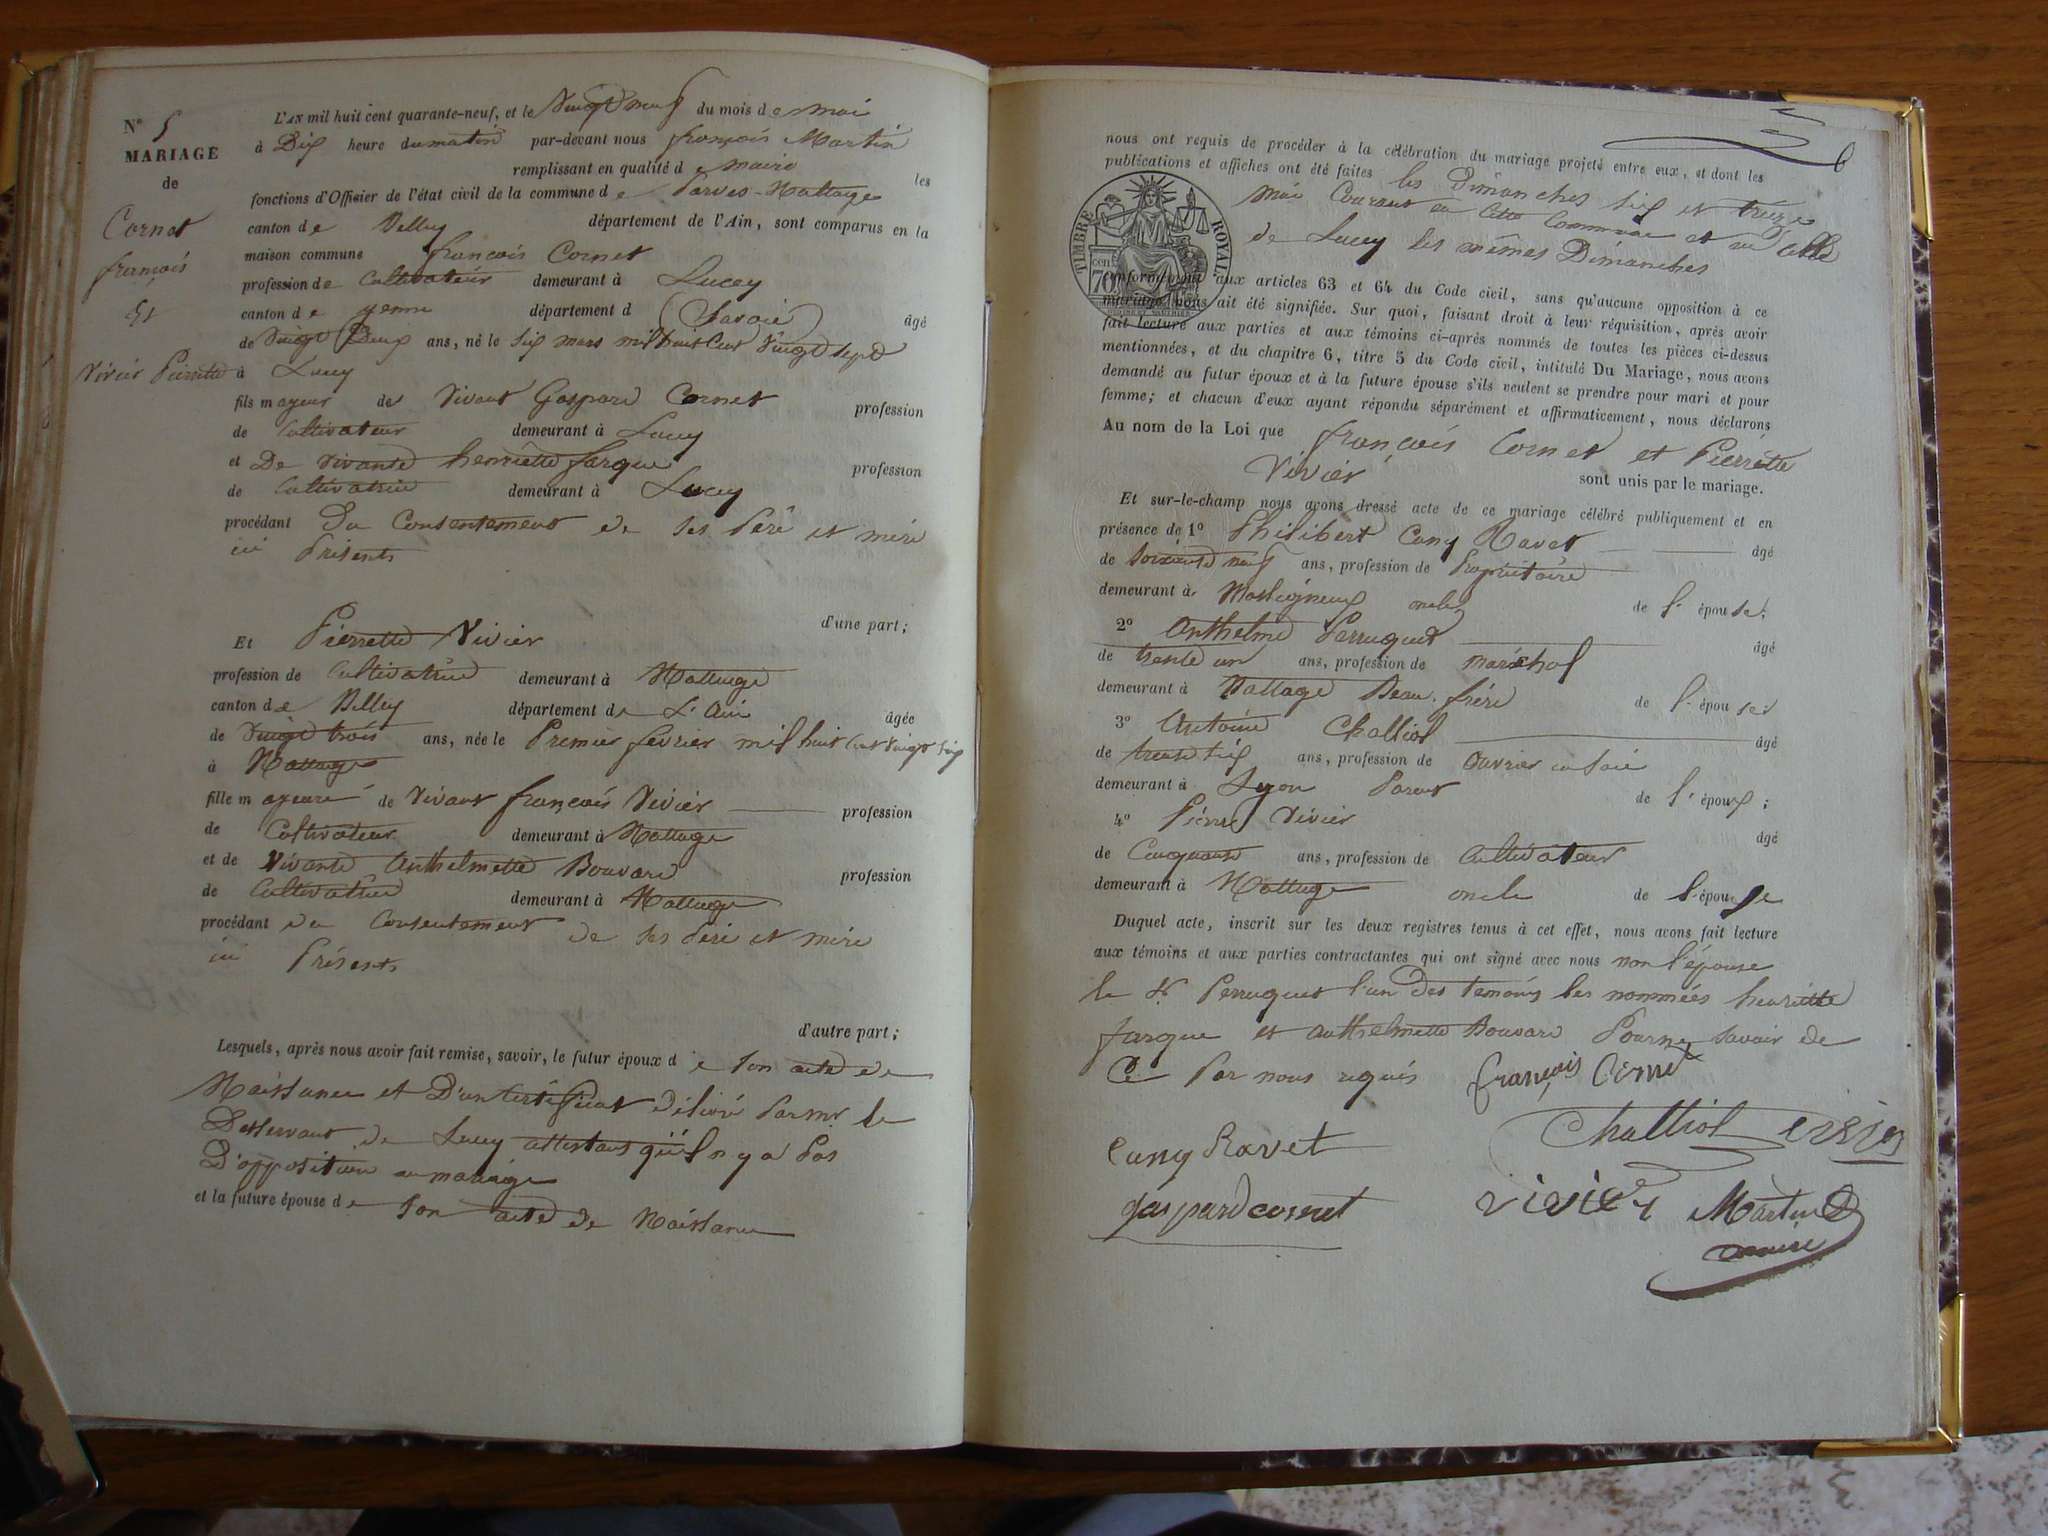 N° 5
MARIAGE
de
Cornet
françois
Et
Vivier Pierrette
L'AN mil huit cent quarante-neuf, et le Vingt neuf du mois de mai
à Dix heure du matin par-devant nous françois Martin
remplissant en qualité de maire les
fonctions d'Officier de l'état civil de la commune de Parves-Nattage
canton de Belley département de l'Ain, sont comparus en la
maison commune françois Cornet
profession de Cultivateur demeurant à Lucey
canton de yenne département d (Savoie) âgé
de Vingt Deux ans, né le Six mars mil huit Cent Vingt sept
à Lucey
fils mayeur de Vivant Gaspard Cornet profession
de Cultivateur demeurant à Lucey
et De vivante henriette farque profession
de Cultivatrice demeurant à Lucey
procédant Du Consentement de ses Père et mère
ici Présents
d'une part;
Et Pierrette Vivier
profession de Cultivatrice demeurant à Nattage
canton de Belley département de L'Ain âgée
de Vingt trois ans, née le Premier fevrier mil huit Cent Vingt Six
à Nattage
fille mayeure de Vivant françois Vivier profession
de Cultivateur demeurant à Nattage
et de Vivante Anthelmette Bouvard profession
de Cultivatrice demeurant à Nattage
procédant du Consentement de ses Père et mère
ici Présents
d'autre part;
Lesquels, après nous avoir fait remise, savoir, le futur époux de son acte de
Naissance et D'un Certificat délivré Par mr. le
Desservant de Lucey attestant qu'il n'y a Pas
D'opposition au mariage
et la future épouse de son acte de Naissance
6
nous ont requis de procéder à la célébration du mariage projeté entre eux, et dont les
publications et affiches ont été faites les Dimanches Six et treize
mai Courant en Cette Commune et en Celle
de Lucey les mêmes Dimanches
TIMBRE ROYAL
cen 70
conformément aux articles 63 et 64 du Code civil, sans qu'aucune opposition à ce
mariage nous ait été signifiée. Sur quoi, faisant droit à leur réquisition, après avoir
fait lecture aux parties et aux témoins ci-après nommés de toutes les pièces ci-dessus
mentionnées, et du chapitre 6, titre 5 du Code civil, intitulé Du Mariage, nous avons
demandé au futur époux et à la future épouse s'ils veulent se prendre pour mari et pour
femme; et chacun d'eux ayant répondu séparément et affirmativement, nous déclarons
Au nom de la Loi que françois Cornet et Pierrette
Vivier sont unis par le mariage.
Et sur-le-champ nous avons dressé acte de ce mariage célébré publiquement et en
présence de 1° Philibert Cuny Ravet âgé
de Soixante neuf ans, profession de Propriétaire
demeurant à oncle de l'épouse;
2° Anthelme Perruquet âgé
de trente un ans, profession de maréchal
demeurant à Nattage Beau-frère de l'épouse;
3° Antoine Challiol âgé
de trente Six ans, profession de ouvrier en Soie
demeurant à Lyon Parent de l'époux;
4° Pierre Vivier âgé
de Cinquante ans, profession de Cultivateur
demeurant à Nattage oncle de l'épouse
Duquel acte, inscrit sur les deux registres tenus à cet effet, nous avons fait lecture
aux témoins et aux parties contractantes qui ont signé avec nous non l'épouse
le Sr Perruquet l'un des temoins les nommées henriette
farque et anthelmette Bouvard Pour ne savoir de
Ce Par nous requis françois Cornet
Challiol vivier
Cuny Ravet
gaspard cornet vivier Martin
maire